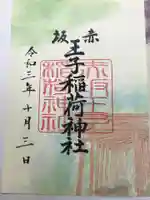 赤坂
王子稲荷神社
令和三年十月三日